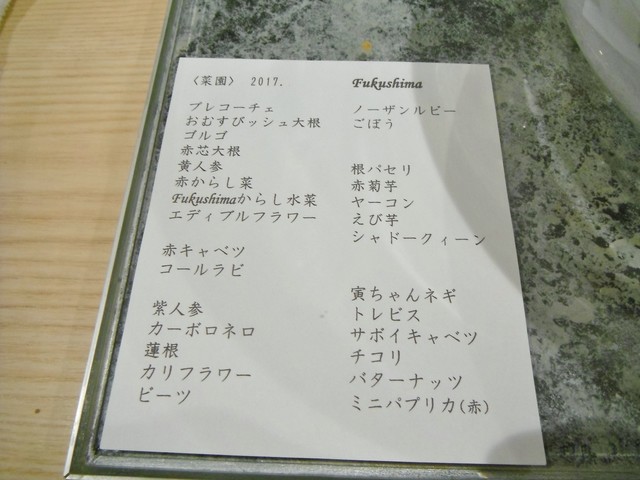 〈菜園〉 2017.
プレコーチェ
おむすびッシュ大根
ゴルゴ
赤芯大根
黄人参
赤からし菜
Fukushimaからし水菜
エディブルフラワー
赤キャベツ
コールラビ
紫人参
カーボロネロ
蓮根
カリフラワー
ビーツ
Fukushima
ノーザンルビー
ごぼう
根パセリ
赤菊芋
ヤーコン
えび芋
シャドークィーン
寅ちゃんネギ
トレビス
サボイキャベツ
チコリ
バターナッツ
ミニパプリカ(赤)